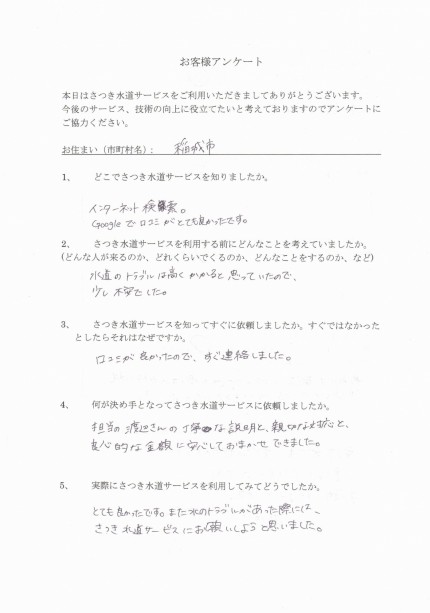 お客様アンケート
本日はさつき水道サービスをご利用いただきましてありがとうございます。
今後のサービス、技術の向上に役立てたいと考えておりますのでアンケートに
ご協力ください。
お住まい（市町村名）： 稲城市
1、 どこでさつき水道サービスを知りましたか。
インターネット検索。
Googleで口コミがとても良かったです。
2、 さつき水道サービスを利用する前にどんなことを考えていましたか。
(どんな人が来るのか、どれくらいでくるのか、どんなことをするのか、など)
水道のトラブルは高くかかると思っていたので、
少し不安でした。
3、 さつき水道サービスを知ってすぐに依頼しましたか。すぐではなかった
としたらそれはなぜですか。
口コミが良かったので、すぐ連絡しました。
4、 何が決め手となってさつき水道サービスに依頼しましたか。
担当の渡辺さんの丁寧な説明と、親切な対応と、
良心的な金額に安心しておまかせできました。
5、 実際にさつき水道サービスを利用してみてどうでしたか。
とても良かったです。また水のトラブルがあった際には、
さつき水道サービスにお願いしようと思いました。